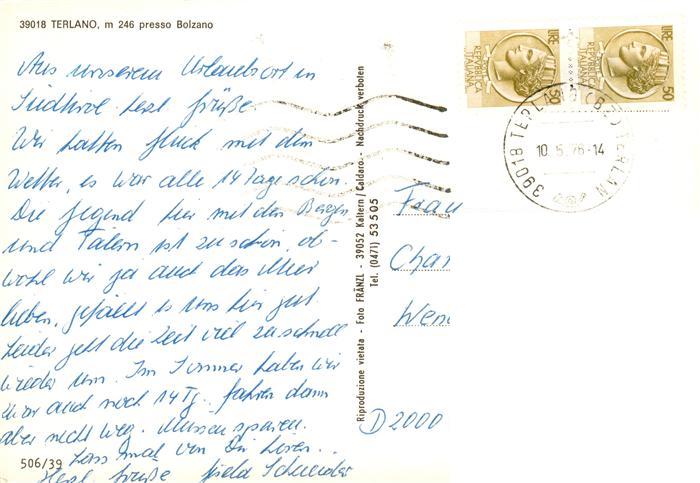 39018 TERLANO, m 246 presso Bolzano
Aus unserem Urlaubsort in
Südtirol herzl. Grüße.
Wir hatten Glück mit dem
Wetter, es war alle 14 Tage schön.
Die Gegend hier mit den Bergen
und Tälern ist zu schön, ob-
wohl wir ja auch das Meer
lieben, gefällt es uns hier gut
Leider geht die Zeit viel zu schnell
wieder um. Im Sommer haben wir
zwar auch noch 14 Tg. fahren dann
aber nicht weg. Müssen sparen.
Lass mal von Dir hören...
Herzl. Grüße Gisela Schneider
506/39
Riproduzione vietata - Foto FRÄNZL - 39052 Kaltern/Caldaro - Nachdruck verboten
Tel. (0471) 53505
LIRE 50
REPVBBLICA ITALIANA
LIRE 50
REPVBBLICA ITALIANA
39018 TERLANO (BZ) TERLAN
10.5.76-14
Frau
Char
Wen
D 2000